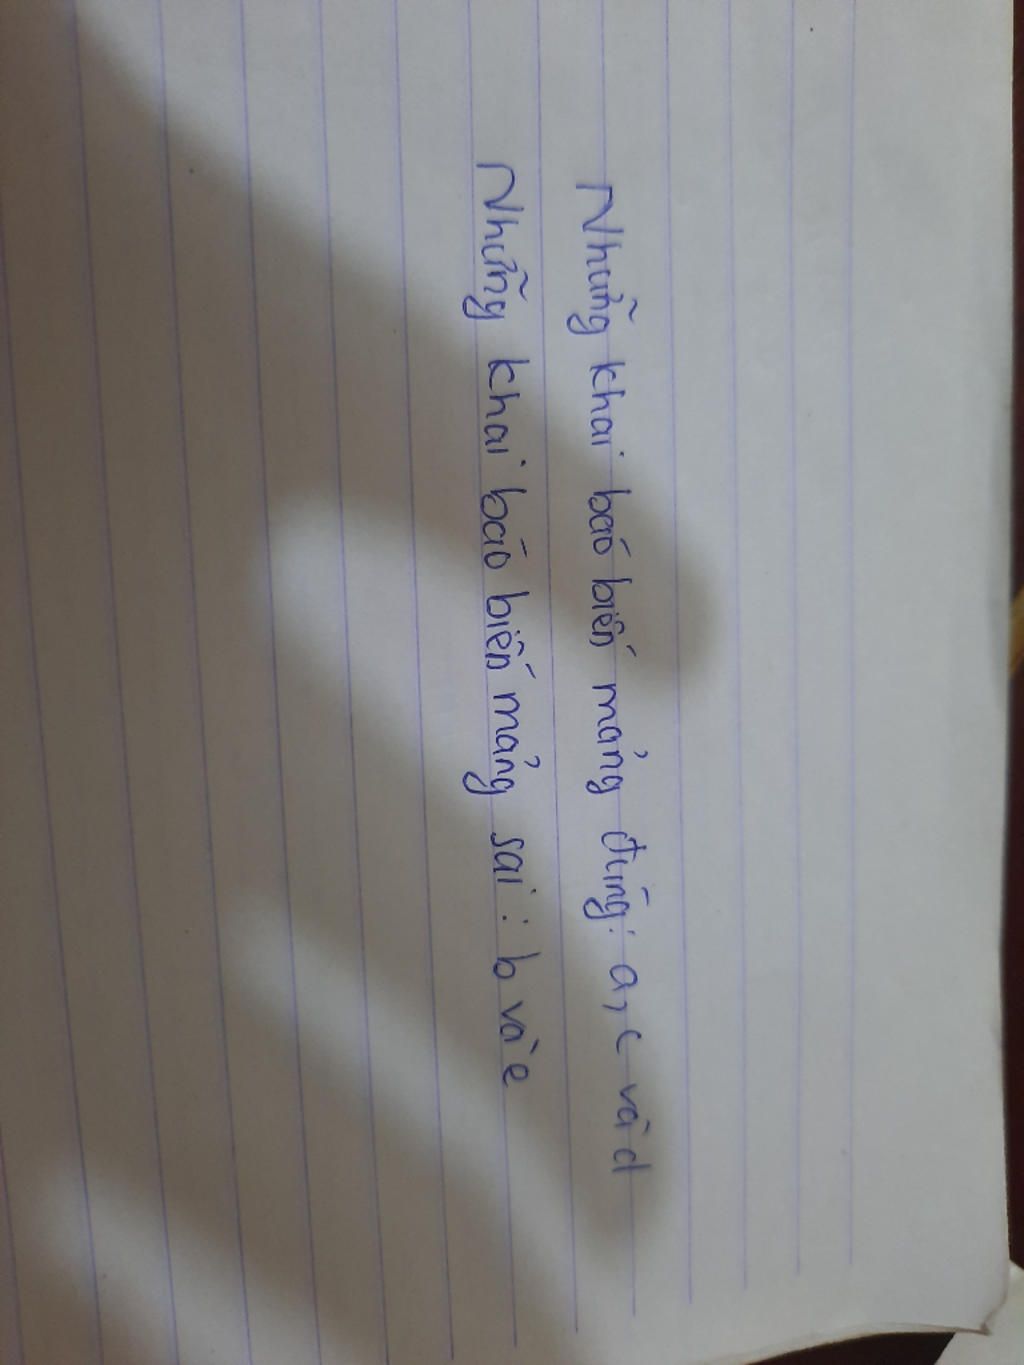 Những khai báo biến mảng đúng: a, c và d
Những khai báo biến mảng sai: b và e